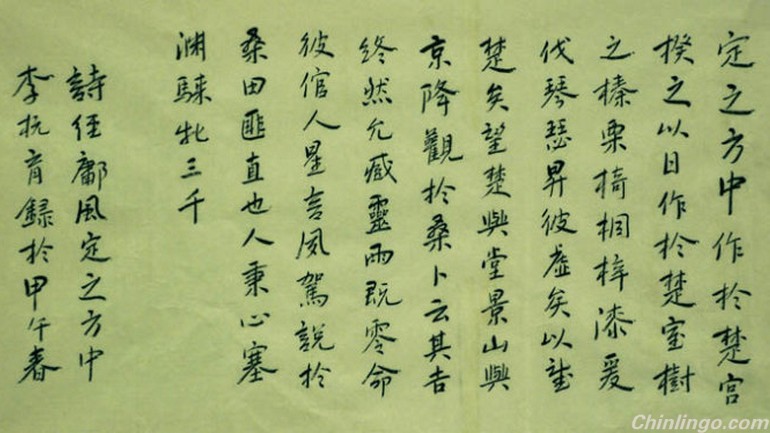 定之方中作於楚宫
揆之以日作於楚室樹
之榛栗椅桐梓漆爰
伐琴瑟昇彼虚矣以望
楚矣望楚與堂景山與
京降觀於桑卜云其吉
終然允臧靈雨既零命
彼倌人星言夙駕説於
桑田匪直也人秉心塞
淵騋牝三千
詩经鄘風定之方中
李抗育録於甲午春
Chinlingo.com